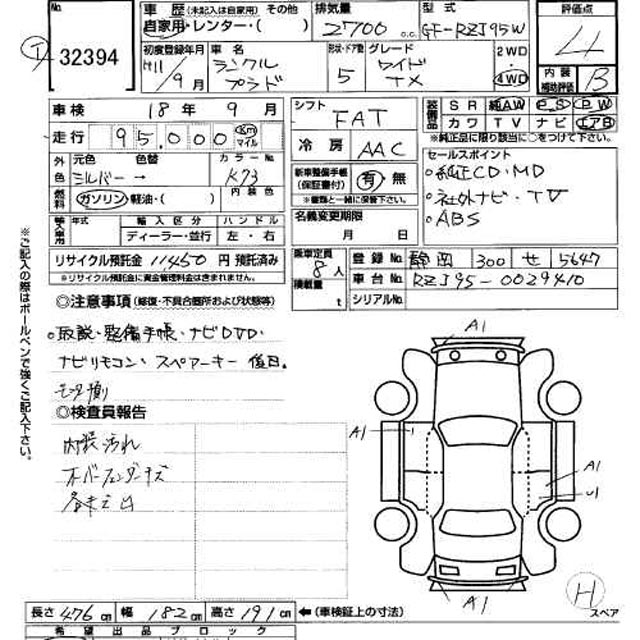 No. 車歴 (未記入は自家用) その他 排気量 型式 評価点
32394 自家用・レンター・( ) 2700 c.c. GF-RZJ95W 4
初度登録年月 車名 形状・ドア数 グレード 2WD
H11/9月 ランクル プラド 5 ワイド TX 4WD 内装 補助評価 B
車検 18年 9月 シフト FAT 装備品 SR 純AW P.S P.W
走行 95,000 Km マイル 冷房 AAC カワ TV ナビ エアB
※純正品に限り該当に○をつけて下さい。
外色 元色 色替 カラーNo. 新車整備手帳(保証書付) 有・無 セールスポイント
シルバー → K73 ※書類と一緒に保管。 ○純正CD・MD
燃料 ガソリン・軽油・( ) 内装色 名義変更期限 ○社外ナビ・TV
輸入車用 年式 輸入区分 ハンドル 月 日 ○ABS
ディーラー・並行 左・右
リサイクル預託金 11450 円 預託済み 乗車定員 8人 登録No. 静岡 300 せ 5647
※リサイクル預託金に資金管理料金は含まれません。 積載量 t 車台No. RZJ95-0029410
シリアルNo.
◎注意事項 (修復・不具合箇所および状態等)
○取説・整備手帳・ナビDVD・
ナビリモコン・スペアーキー 後日。
A1
◎検査員報告
内装汚れ
A1
オーバーフェンダーキズ
A1
U1
A1
H
スペア
長さ 476 cm 幅 182 cm 高さ 191 cm ←(車検証上の寸法)
希望出品ブロック
※ご記入の際はボールペンで強くご記入下さい。